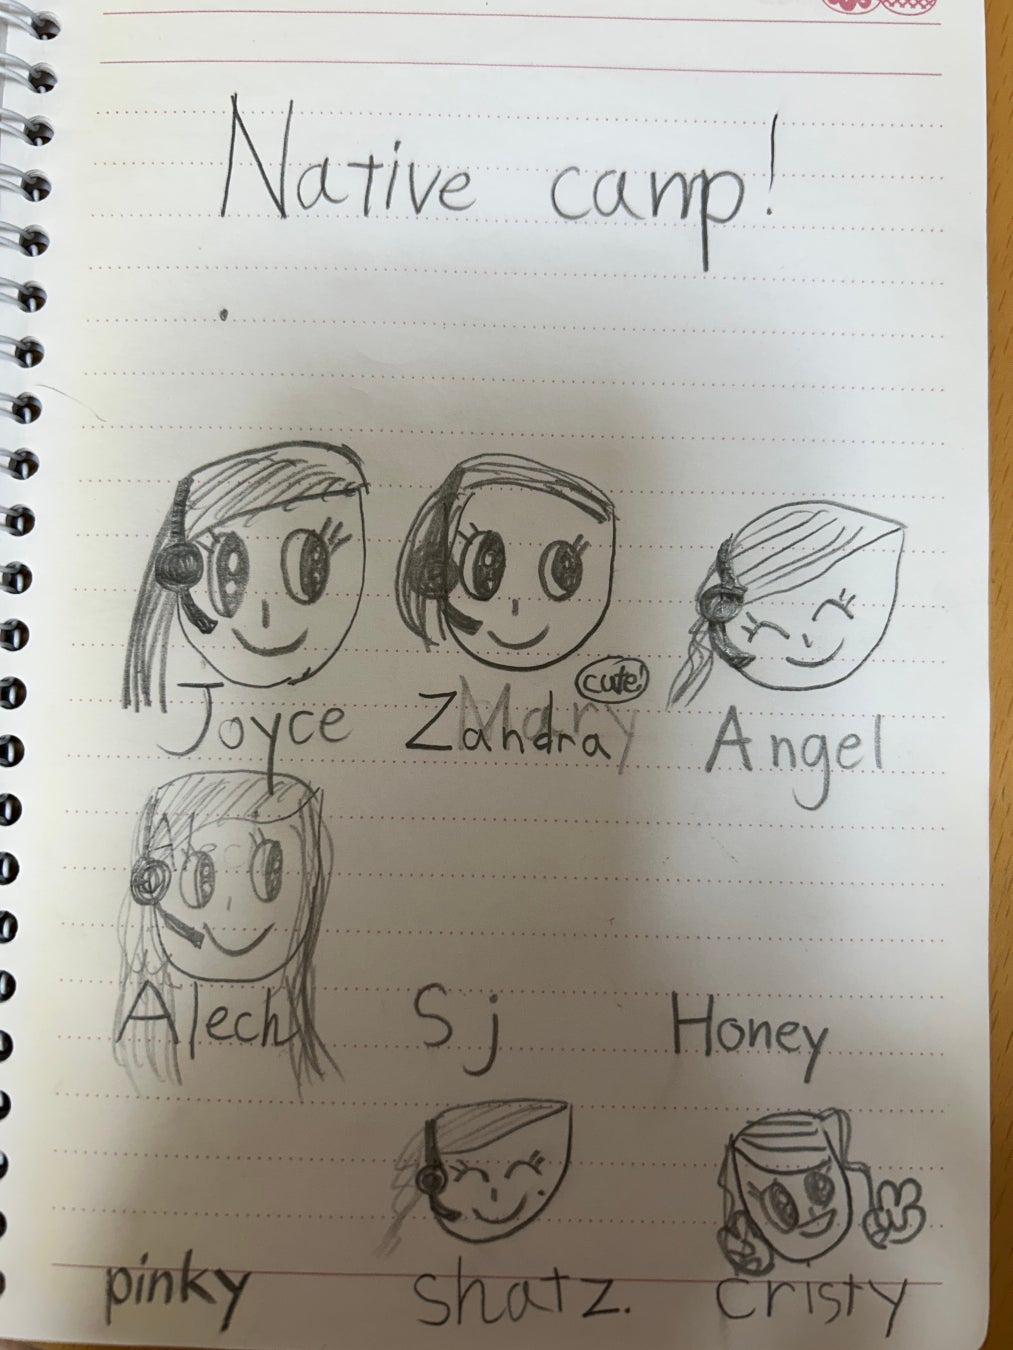 Native camp!
cute!
Joyce Zandra Mary Angel
Alech Sj Honey
pinky shatz. cristy